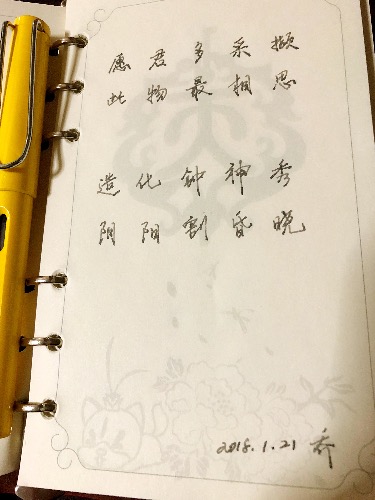 愿君多采撷
此物最相思
造化钟神秀
阴阳割昏晓
2018.1.21 乔